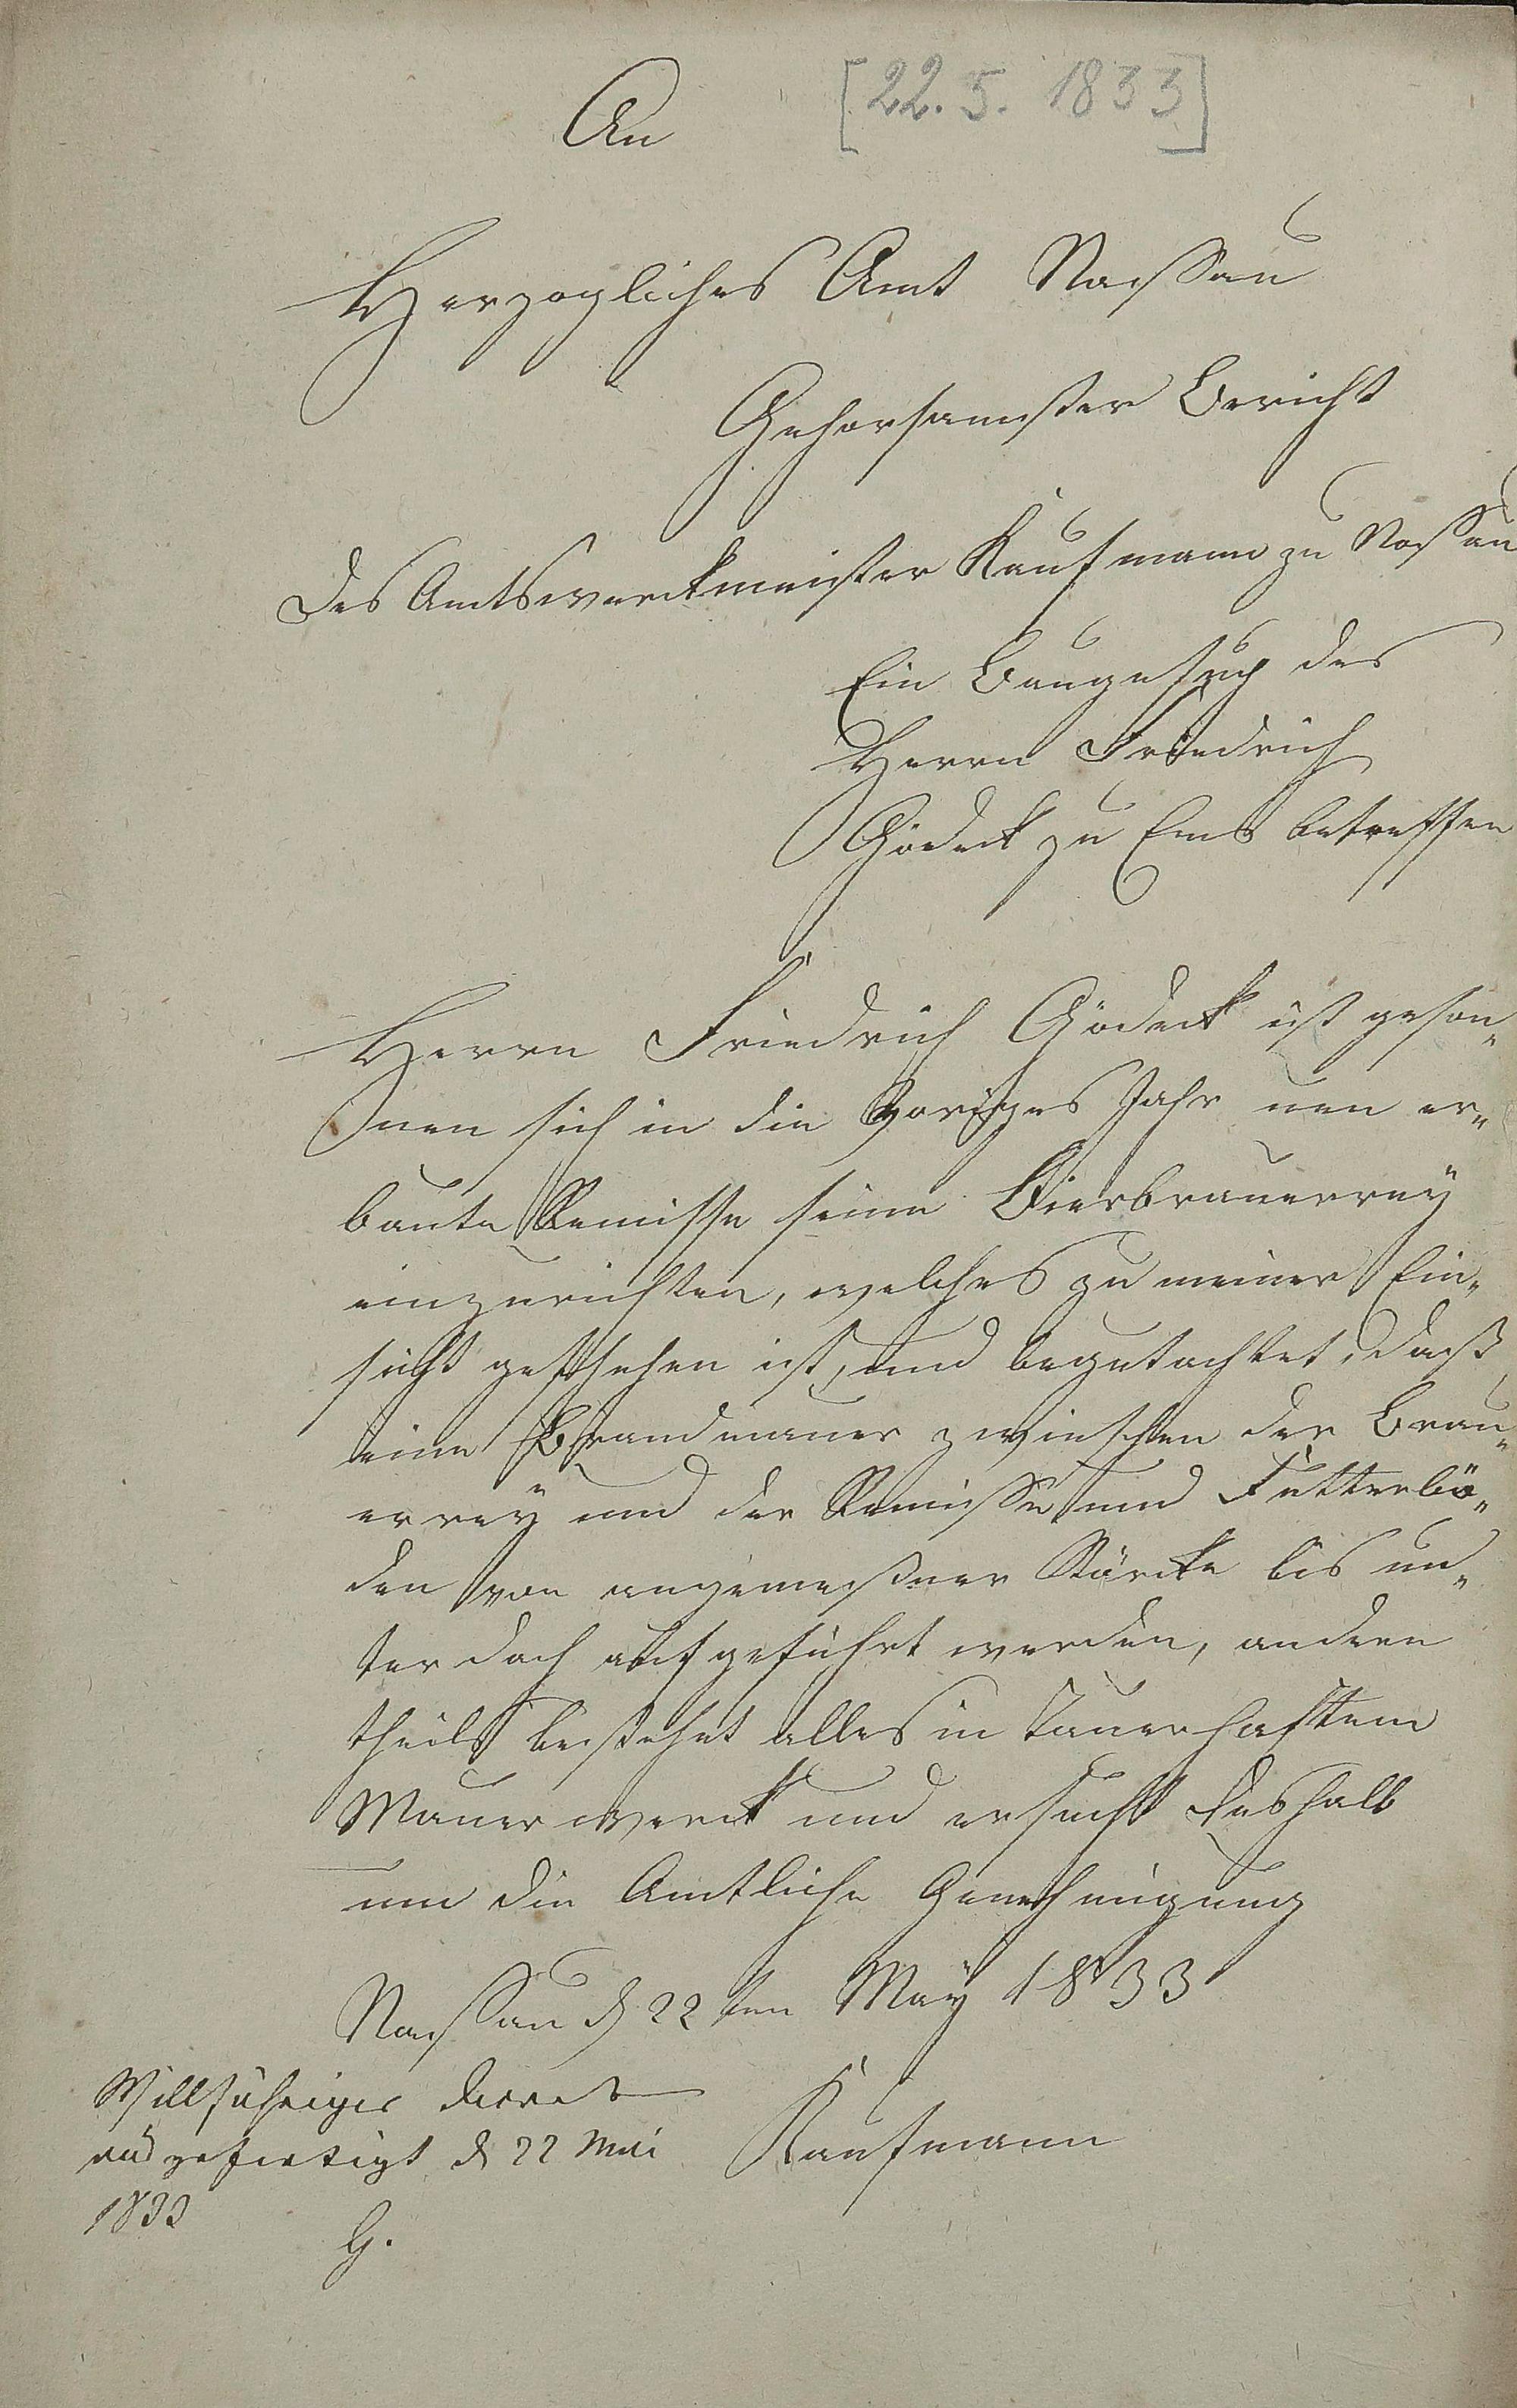 [22. 5. 1833]
An
Herzogliches Amt Nassau
Gehorsamster Bericht
des Amtswerckmeister Kaufmann zu Nassau
Ein Baugesuch des
Herrn Friedrich
Gödeck zu Ems betreffen
Herrn Friedrich Gödeck ist geson„
nen sich in die voriges Jahr neu er„
baute Remisse seine Bierbrauerrey
einzurichten, welches zu meiner Ein„
sicht geschehen ist, und begutachtet, daß
eine Brandmauer zwischen der Brau„
errey und der Remisse und Futterbö„
den von angemeßner Stärcke bis un„
ter dach aufgeführt werden, andern
theils bestehet alles in Dauerhaftem
Mauerwerck und ersucht deshalb
um die Amtliche Genehmigung
Nassau d 22ten May 1833
Kaufmann
Willfähriges Decret
ausgefertigt d 22 Mai
1833
G.